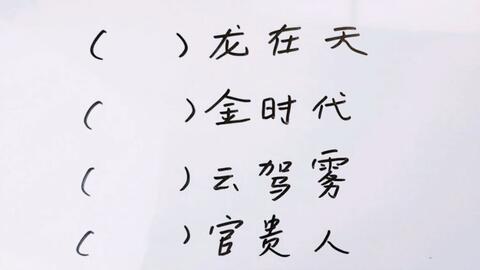 (  )龙在天
(  )金时代
(  )云驾雾
(  )官贵人